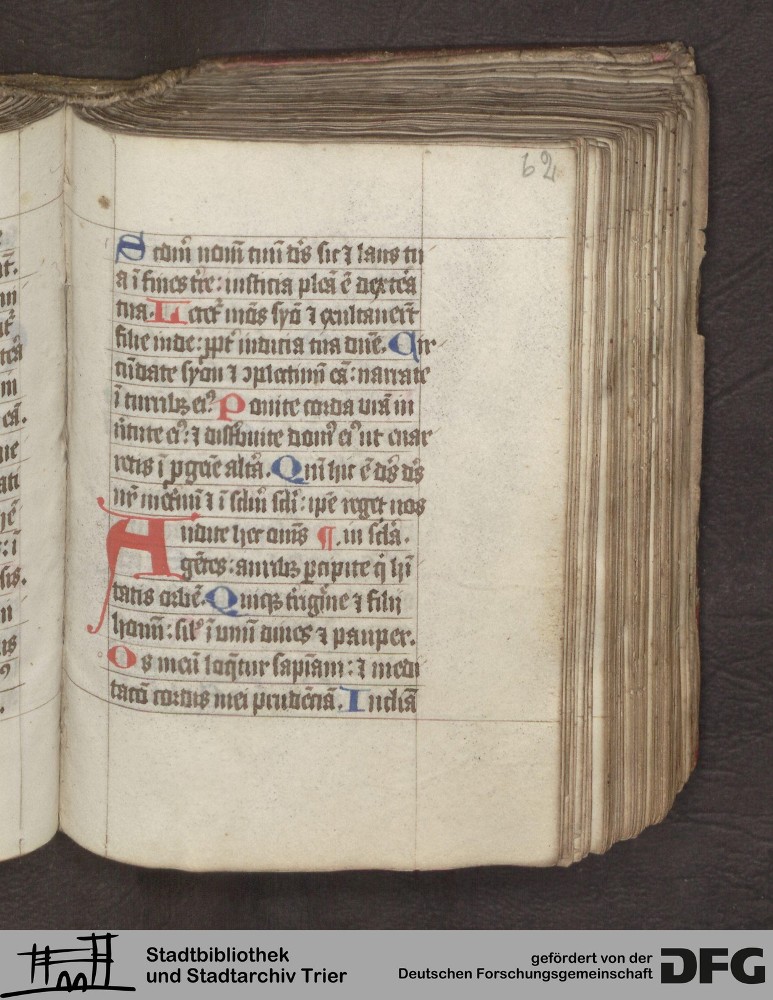 62
Scdm̄ nomē tuū ds̄ sic ⁊ laus tu
a ī fines tr̄e: iusticia plēa ē dextēa
tua. Letet᷑ mōs syō ⁊ exultauert̄
filie iude: ꝓpt̄ iudicia tua dn̄e. Cir
cūdate syon ⁊ ꝯplectimī eā: narrate
ī turribꝫ eiꝰ Ponite corda vr̄a in
ūtute eiꝰ: ⁊ distbuite domꝰ eiꝰ ut enar
retis ī ꝓgēie altā. Qm̄ hic ē ds̄ ds̄
nr̄ in et̄nū ⁊ ī sclm̄ scli: ip̄e reget nos
Audite hec oms̄ ¶. in scl̄a.
gētes: auribꝫ ꝑcipite q̄ hī
tatis orbē. Quiqꝫ t̄rigīne ⁊ filij
hoīm: sīl ī unū diues ⁊ pauper.
Os meū loq̄tur sapiam̄: ⁊ medi
tacō cordis mei prudēciā. Inclīa
Stadtbibliothek
und Stadtarchiv Trier
gefördert von der
Deutschen Forschungsgemeinschaft
DFG